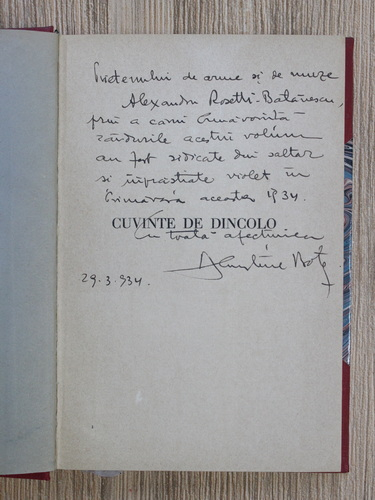 Prietenului de arme și de muze
Alexandru Rosetti-Bălănescu,
prin a cărui bunăvoință
rândurile acestui volum
au fost ridicate din saltar
și împrăștiate violet în
Primăvara aceasta 1934.
CUVINTE DE DINCOLO
Cu toată afecțiunea
29.3.934.